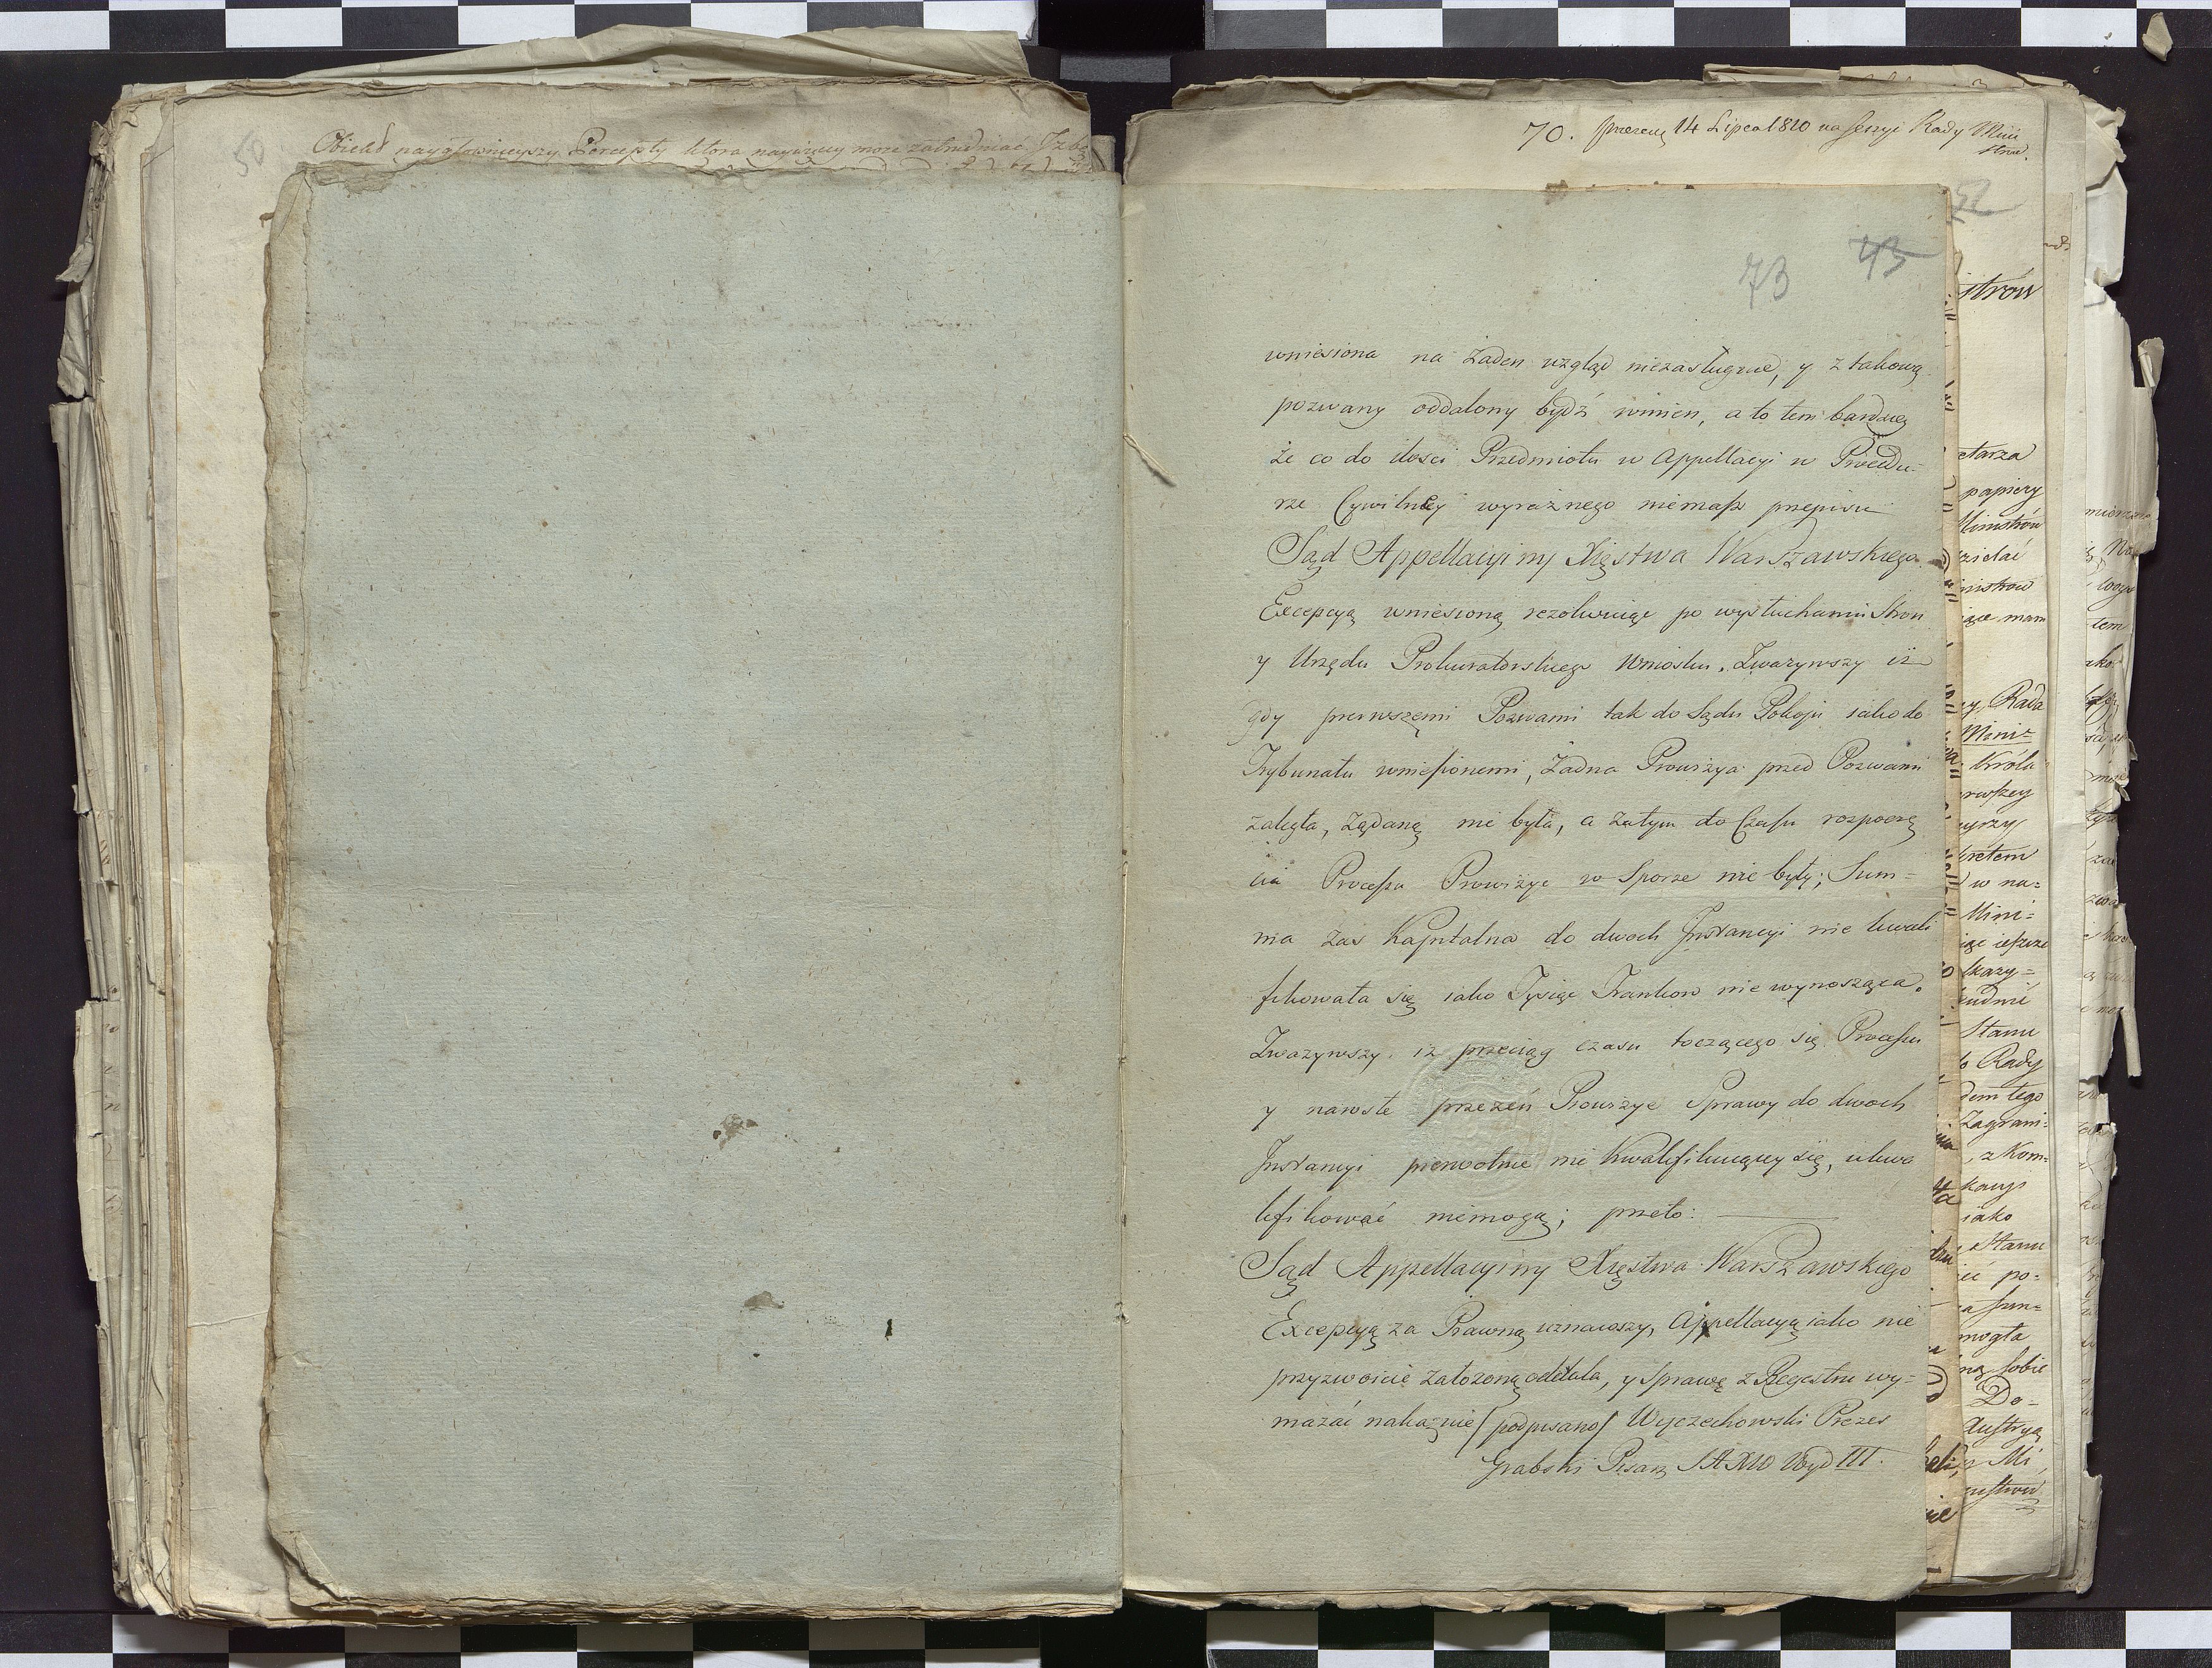 50
Obiekt naygłownieyszy Percepty ktora naywięcy może zatrudniac Izbę
70. 14 Lipca 1810 na Sessyi Rady Mini
strow.
52
73 43
wniesiona na żaden wzgląd niezasługuie, y z takową
pozwany oddalony bydź winien, a to tem bardziey
że co do ilosci Przedmiotu w Appellacyi w Procedu-
rze Cywilney wyraźnego niemasz przepisu
Sąd Appellacyiny Xięstwa Warszawskiego
Excepcyą wniesioną rezolwuiąc po wysłuchaniu Stron
y Urzędu Prokuratorskiego Wniosku. Zważywszy iż
gdy pierwszemi Pozwami tak do Sądu Pokoju iako do
Trybunału wniesionemi, żadna Prowizya przed Pozwami
zaległa, żądaną nie była, a zatym do Czasu rozpoczę
cia Processu Prowizye w Sporze nie były; Sum-
ma zaś Kapitalna do dwoch Instancyi nie kwali
fikowała się iako Tysiąc Frankow nie wynosząca.
Zważywszy, iż przeciąg czasu toczącego się Processu
y narosłe przezeń Prowizye Sprawy do dwoch
Instancyi pierwotnie nie kwalifikuiącey się, ukwa
lifikować niemogą; przeto:
Sąd Appellacyiny Xięstwa Warszawskiego
Excepcyą za Prawną uznawszy, Appellacyą iako nie
przyzwoicie założoną oddala, y Sprawę z Regestru wy-
mazać nakazuie /podpisano/ Wyczechowski Prezes
Grabski Pisarz SAXW Wyd III.
strów
etarza
papiery
Ministrów
nistrów
iące mam
Rada
Mini=
Króla
w na=
Mini=
Stanu
Rady
dem tego
Zagrani=
z Kom=
iako
Stanu
po=
mogła
sobie
Do-
Austryą
Mi